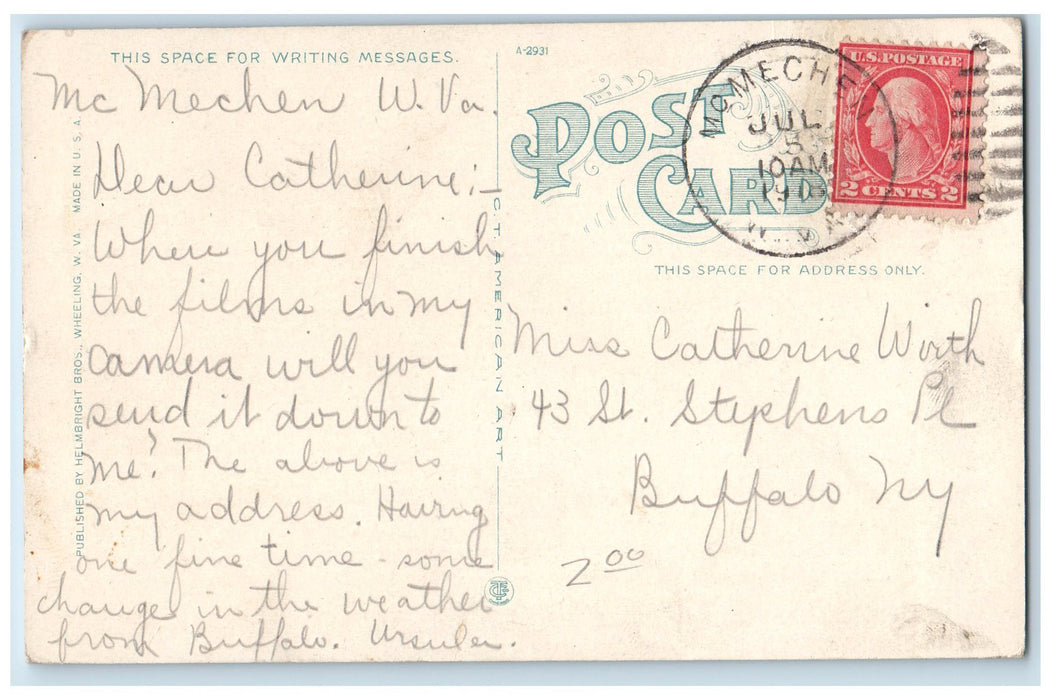 THIS SPACE FOR WRITING MESSAGES.
Mc Mechen W. Va.
Dear Catherine:-
When you finish
the films in my
camera will you
send it down to
me? The above is
my address. Having
one fine time - some
change in the weather
from Buffalo. Ursula.
PUBLISHED BY HELMBRIGHT BROS., WHEELING, W. VA. MADE IN U. S. A.
C.T. AMERICAN ART
A-2931
POST
CARD
MCMECHEN
JUL
5
10 AM
W. VA.
U.S. POSTAGE
2 CENTS 2
THIS SPACE FOR ADDRESS ONLY.
Miss Catherine Worth
43 St. Stephens Pl
Buffalo NY
2 00